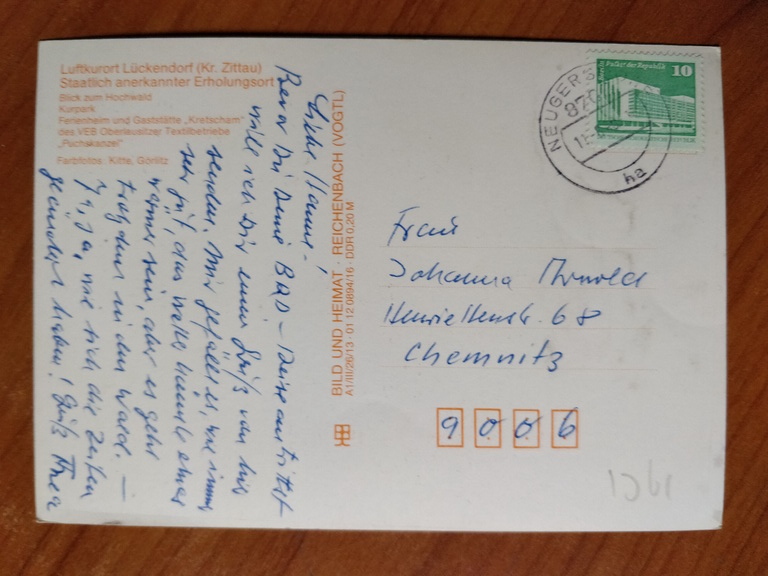 Luftkurort Lückendorf (Kr. Zittau)
Staatlich anerkannter Erholungsort
Blick zum Hochwald
Kurpark
Ferienheim und Gaststätte „Kretscham“
des VEB Oberlausitzer Textilbetriebe
„Puchskanzel“
Farbfotos: Kitte, Görlitz
Liebe Hanne!
Bevor Du Deine BAD-Reise antrittst
will ich Dir einen Gruß von hier
senden. Mir gefällt es, wie immer
sehr gut, das Wetter könnte etwas
wärmer sein, aber es geht
trotzdem in den Wald. —
Ja, ja, wie sich die Zeiten
geändert haben! Gruß Thea
BILD UND HEIMAT · REICHENBACH (VOGTL)
A1/III/26/13 · 01 12 0894/16 · DDR 0,20 M
Palast der Republik
10
NEUGERS
870
ha
Frau
Johanna Arnold
Henriettenstr. 68
Chemnitz
9006